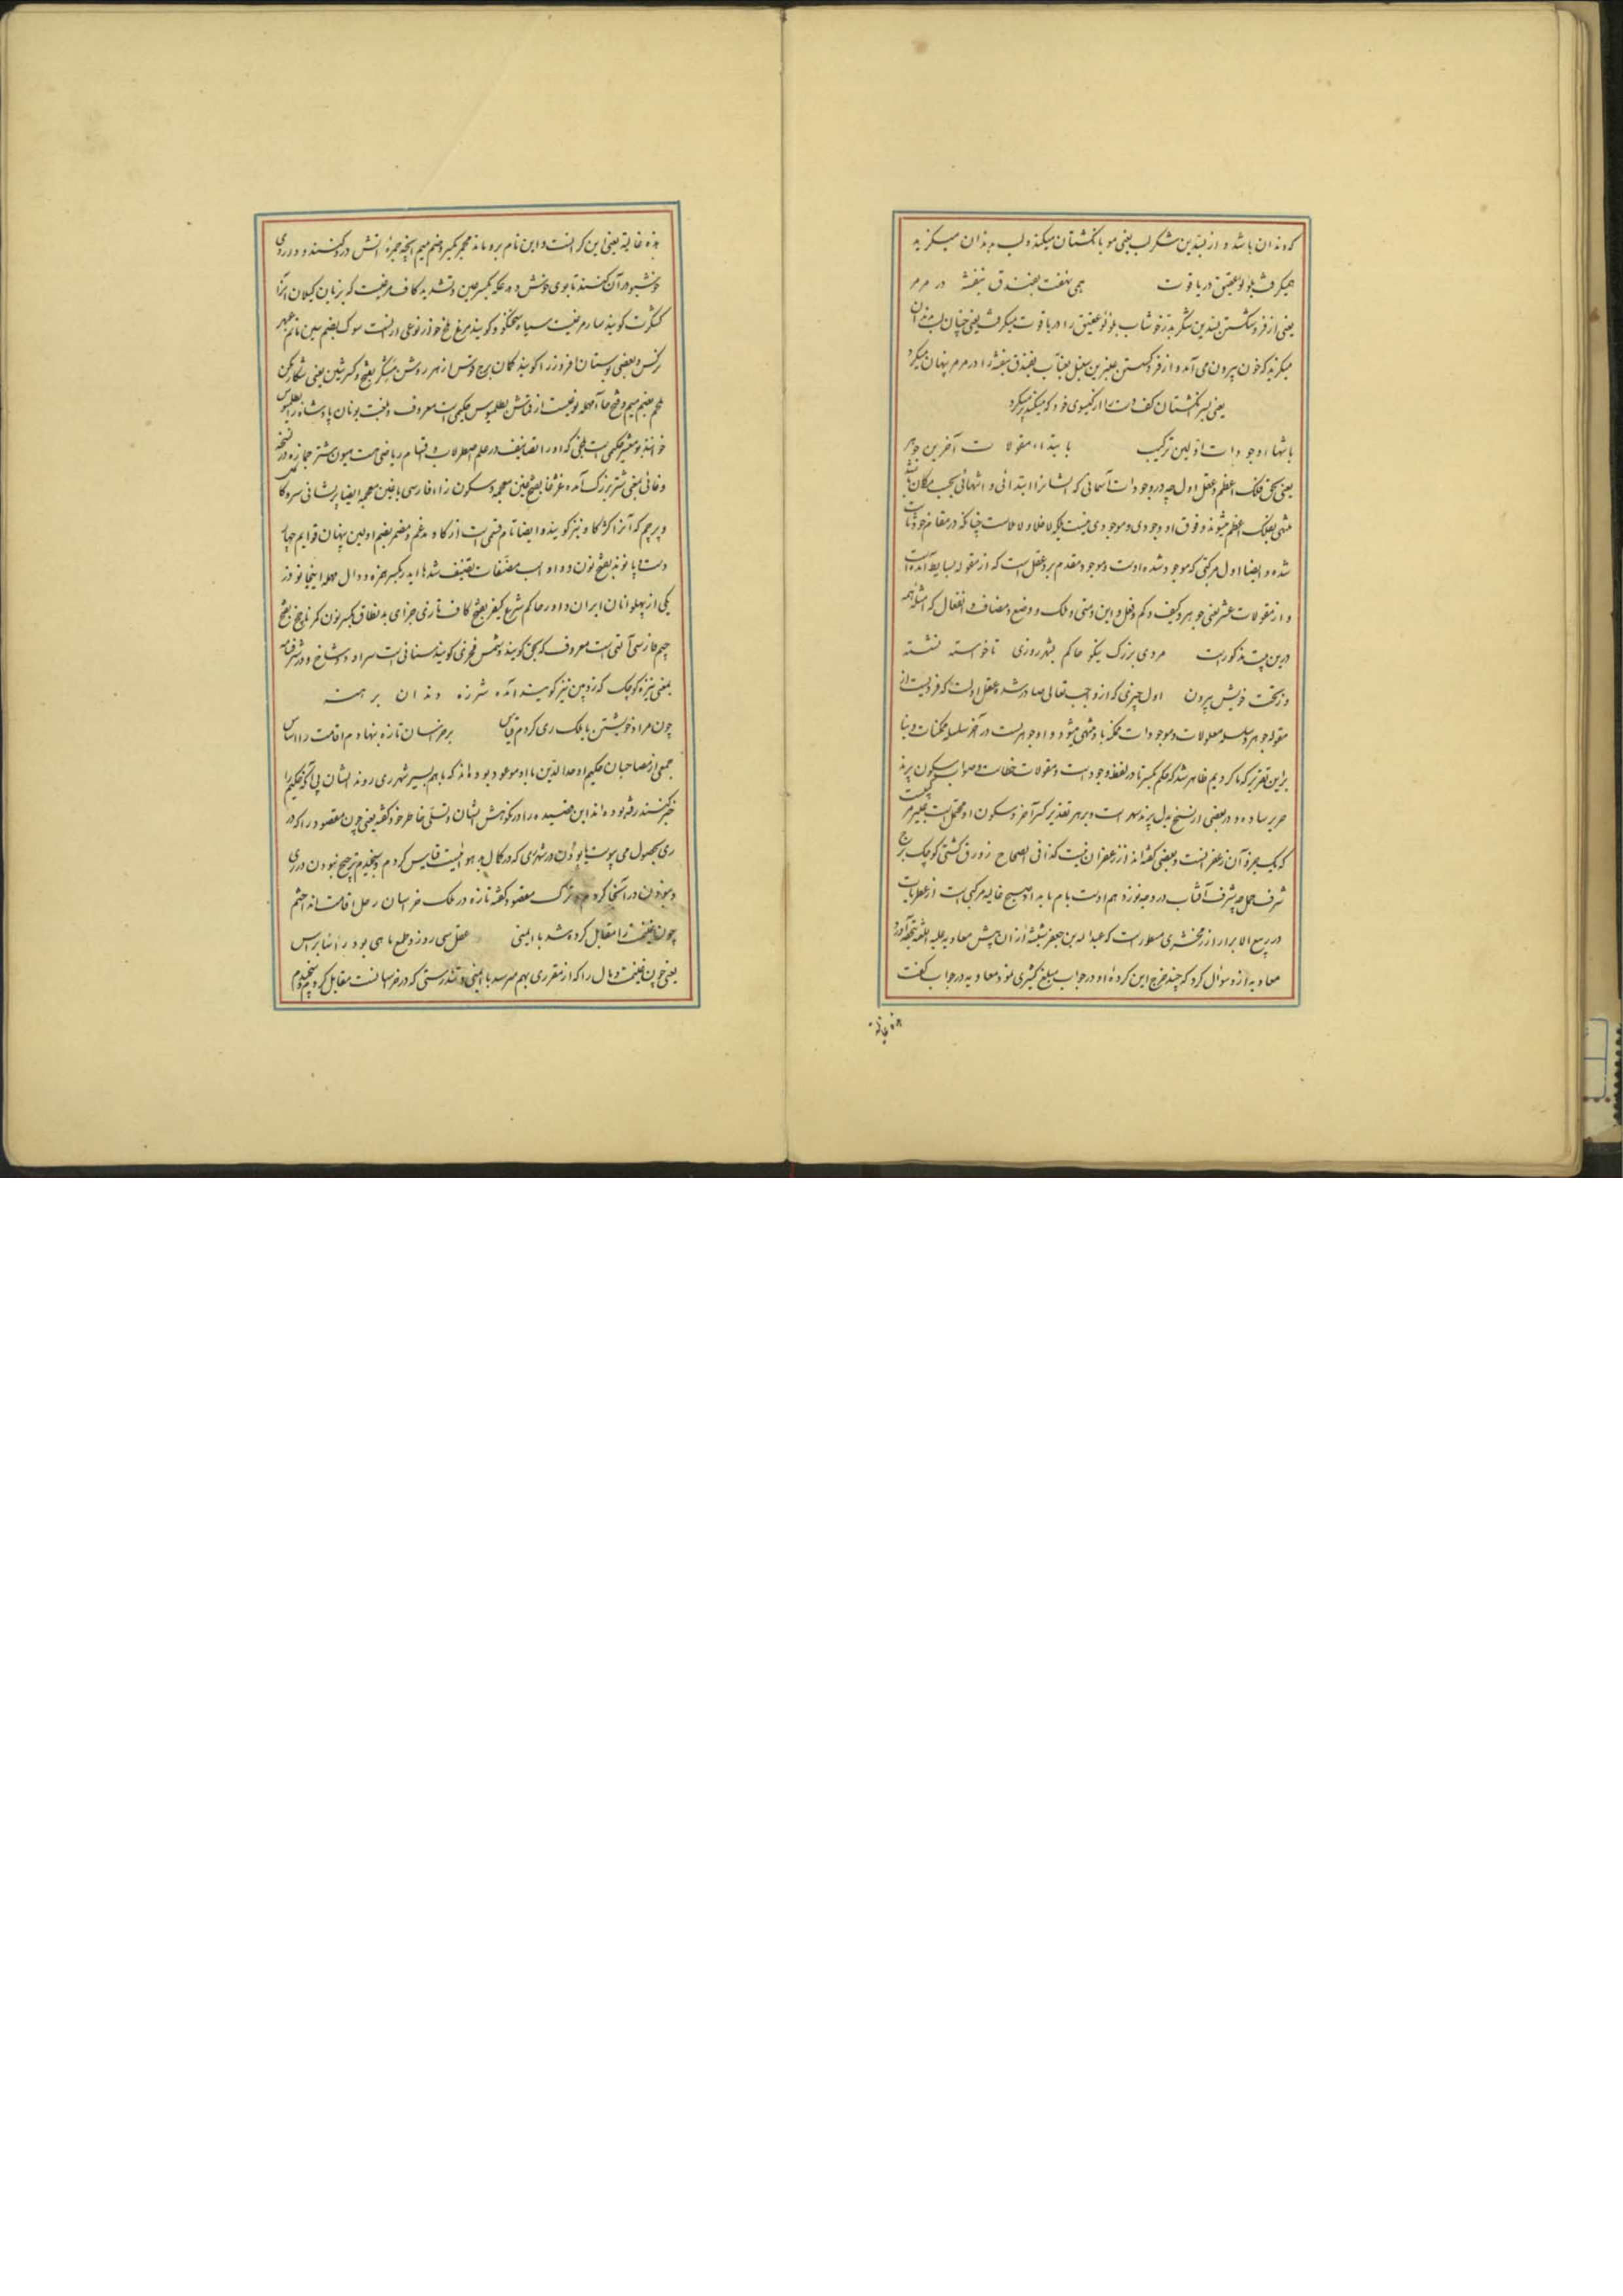 که دندان باشد و از قندین شکر لب یعنی مو با انگشتان میکند و لب بدندان میگزید
همیگرفت بلؤلؤ عقیق در یاقوت همی نهفت بفندق بنفشه در مرمر
یعنی از فرو شکستن قندین شکر بدر خوشاب بلؤلؤ عقیق را در یاقوت میگرفت یعنی چنان لب بدندان
میگزید که خون بیرون می آمد و از فرو گسستن عنبرین سنبل بعناب بفندق بنفشه را در مرمر پنهان میکرد
یعنی بسر انگشتان کف دست را از گیسوی خود که میکند پر میکرد
بانتهاء وجودات اولین ترکیب بابتداء مقولات آخرین جوهر
یعنی بحق فلک اعظم و عقل اول چه در وجودات آسمانی که ایشانرا ابتدائی و انتهائی بحسب مکان باشد
منتهی بفلک اعظم میشوند و فوق او وجودی و موجودی نیست بلکه لا خلا و لا ملاست چنانکه در مقام خود ثابت
شده و ایضا اول مرکبی که موجود شده اوست و موجود مقدم برو عقل است که از مقوله بسایط آمده است
و از مقولات عشر یعنی جوهر و کیف و کم و فعل و این و متی و ملک و وضع و مضاف و انفعال که امثله همه
درین بیت مذکورست مردی بزرگ نیکو حاکم بشهر روزی ناخواسته نشسته
وز بخت خویش پیرون اول چیزی که از واجب تعالی صادر شده عقل اولست که فردیست از
مقوله جوهر و سلسله معلولات و موجودات ممکنه باو منتهی میشود و او جوهریست در آخر سلسله ممکنات و بنا
براین تقریر که ما کردیم ظاهر شد که حکم بکسر تا در لفظ وجود است و مقولات خطاست و صواب سکون پرند
حریر ساده و در بعضی از نسخ بدل پرند سهر است و بر هر تقدیر کسر آخر و سکون او محتمل است عبیر مرکبیست
که یک جزو آن زعفرانست و بعضی گفته اند از زعفران نیست کذا فی الصحاح زورق کشتی کوچک برج
شرف حمل چه شرف آفتاب در درجه نوزدهم اوست بام بامداد صبیح غالیه مرکبی است از عطریات
در ربیع الابرار از زمخشری مسطورست که عبدالله بن جعفر شیشه از آن پیش معاویه علیه اللعنه تحفه آورد
معاویه ازو سؤال کرد که چند خرج این کرده او در جواب مبلغ کثیری نمود معاویه در جواب گفت
هذه غالیة
هذه غالیة یعنی این گرانست و این نام برو ماند مجمر بکسر و ضم میم آنچه جمره آتش درو کنند و دودی
خوشبو در آن کنند تا بوی خوش دهد عکه بکسر عین و تشدید کاف مرغیست که بزبان گیلان آنرا
کشکرت گویند سار مرغیست سیاه سخنگو و گویند مرغ ملخ خوار نوعی درانست سوک بضم سین ماتم عبهر
نرگس و بعضی بوستان افروز را گویند کمان برج قوس ازهر روشن مشکر بفتح و کسر شین یعنی شکار کن
ملحم بضم میم و فتح حاء مهمله نوعیست از قماش بطلمیوس حکیمی است معروف و بلغت یونان پادشاه را بطلمیوس
خوانند بومعشر حکیمی است بلخی که او را تصانیف در علم اصطرلاب و اقسام ریاضی هست هیون شتر جمازه در نسخه
وفائی یعنی شتر بزرگ آمده غژغا بفتح غین معجمه و سکون زاء فارسی با غین معجمه ایضا پرشانی سرو کاکل
و پرچم که آنرا کژ گاو نیز گویند و ایضا نام قسمی است از گاو مدغم و مضمر بضم اولین پنهان قوایم چهار
دست و پا نوند بفتح نون و واو اسب مصنفات تصنیف شدها ایدر بکسر همزه و دال مهمله اینجا نوذر
یکی از پهلوانان ایران داور حاکم شرع کیفر بفتح کاف تازی جزای بد نطاق بکسر نون کمر ناچخ بفتح
جیم فارسی آلتی است معروف که بعضی گویند و شمس فخری گوید سنانی است سر او دو شاخ و در شرفنامه
بمعنی نیزه کوچک که زوبین نیز گویند آمده شرزه دندان برهنه
چون مراد خویشتن با ملک ری کردم قیاس بر خراسان تازه بنهادم اقامت را اساس
جمعی از مصاحبان حکیم اوحدالدین با او موعود بوده اند که باهم بسیر شهر ری روند ایشان بی آنکه حکیم را
خبر کنند رفته بوده اند این قصیده را در نکوهش ایشان و تسلی خاطر خود گفته یعنی چون مقصود را که در
ری بحصول می پیوست با بودن در شهری که در کمال بد هوائیست قیاس کردم و سنجیدم ترجیح نبودن در ری
و بودن در آنجا کردم و ترک مقصود گفته تازه در ملک خراسان رحل اقامت انداختم
چون غنیمت را مقابل کرده شد با ایمنی عقل سی روز و طمع ماهی بود راسابراس
یعنی چون غنیمت و مال را که از سفر ری بهم میرسد با ایمنی و تندرستی که در خراسانست مقابل کرده سنجیدم